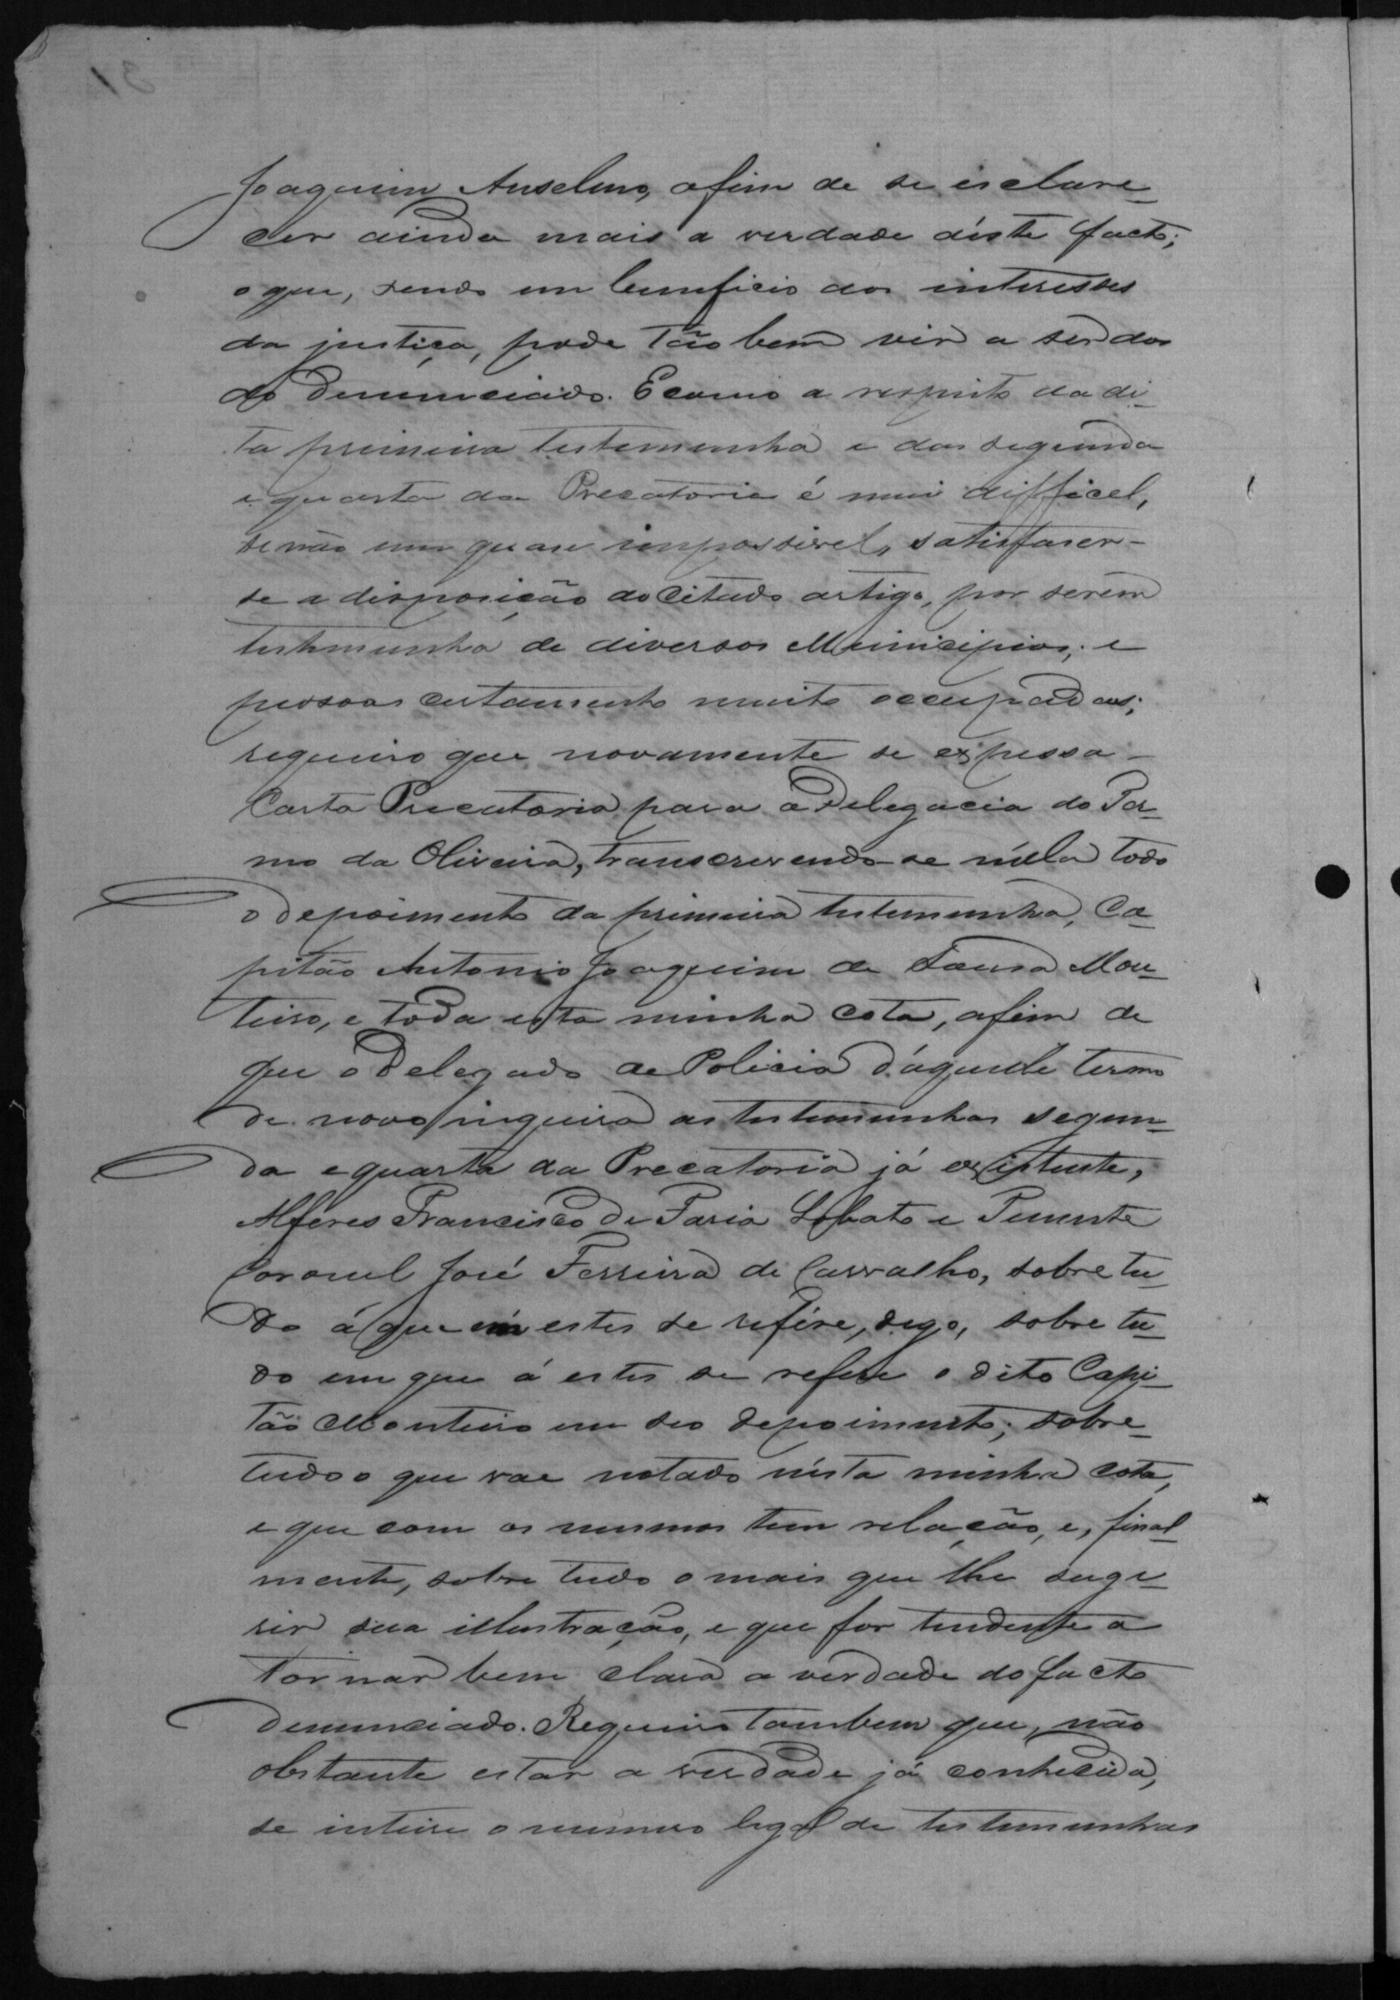 Joaquim Anselmo, afim de se esclare-
cer ainda mais a verdade déste facto;
o que, sendo um beneficio aos interesses
da justiça, pode tão bem vir a ser dos
do denunciado. E como a respeito da di-
ta primeira testemunha e das segunda
e quarta da Precatoria é mui difficel,
se não um quase impossivel, satisfaser-
se a disposição do Citado artigo, por serem
testemunha de diversos Municipios, e
pessoas certamente muito occupadas;
requeiro que novamente se expessa
Carta Precatoria para a Delegacia do Ter-
mo da Oliveira, transcrevendo-se néla todo
o depoimento da primeira testemunha, Ca-
pitão Antonio Joaquim de Sousa Mon-
teiro, e toda esta minha cota, afim de
que o Delegado de Policia d'aquele termo
de novo inqueira as testemunhas segun-
da e quarta da Precatoria já existente,
Alferes Francisco de Faria Lobato e Tenente
Coronel José Ferreira de Carvalho, sobre tu-
do á que em estes se refére, digo, sobre tu-
do em que á estes se refere o dito Capi-
tão Monteiro em seo depoimento; sobre
tudo o que vae notado nésta minha cota,
e que com os mesmos tem relação, e, final-
mente, sobre tudo o mais que lhe suge-
rir sua illustração, e que for tendente a
tornar bem clara a verdade do facto
denunciado. Requeiro tambem que, não
obstante estar a verdade já conhecida,
se inteire o numero legal de testemunhas